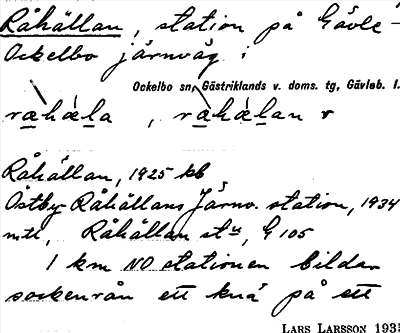 Råhällan, station på Gävle-
Ockelbo järnväg i
Ockelbo sn, Gästriklands v. doms. tg, Gävleb. l.
ræhæla, ræhælan r
Råhällan, 1925 kb
Östby-Råhällans Järnv. station, 1934
mtl, Råhällan stn, G 105
1 km NO stationen bildar
sockenrån ett knä på ett
LARS LARSSON 1935